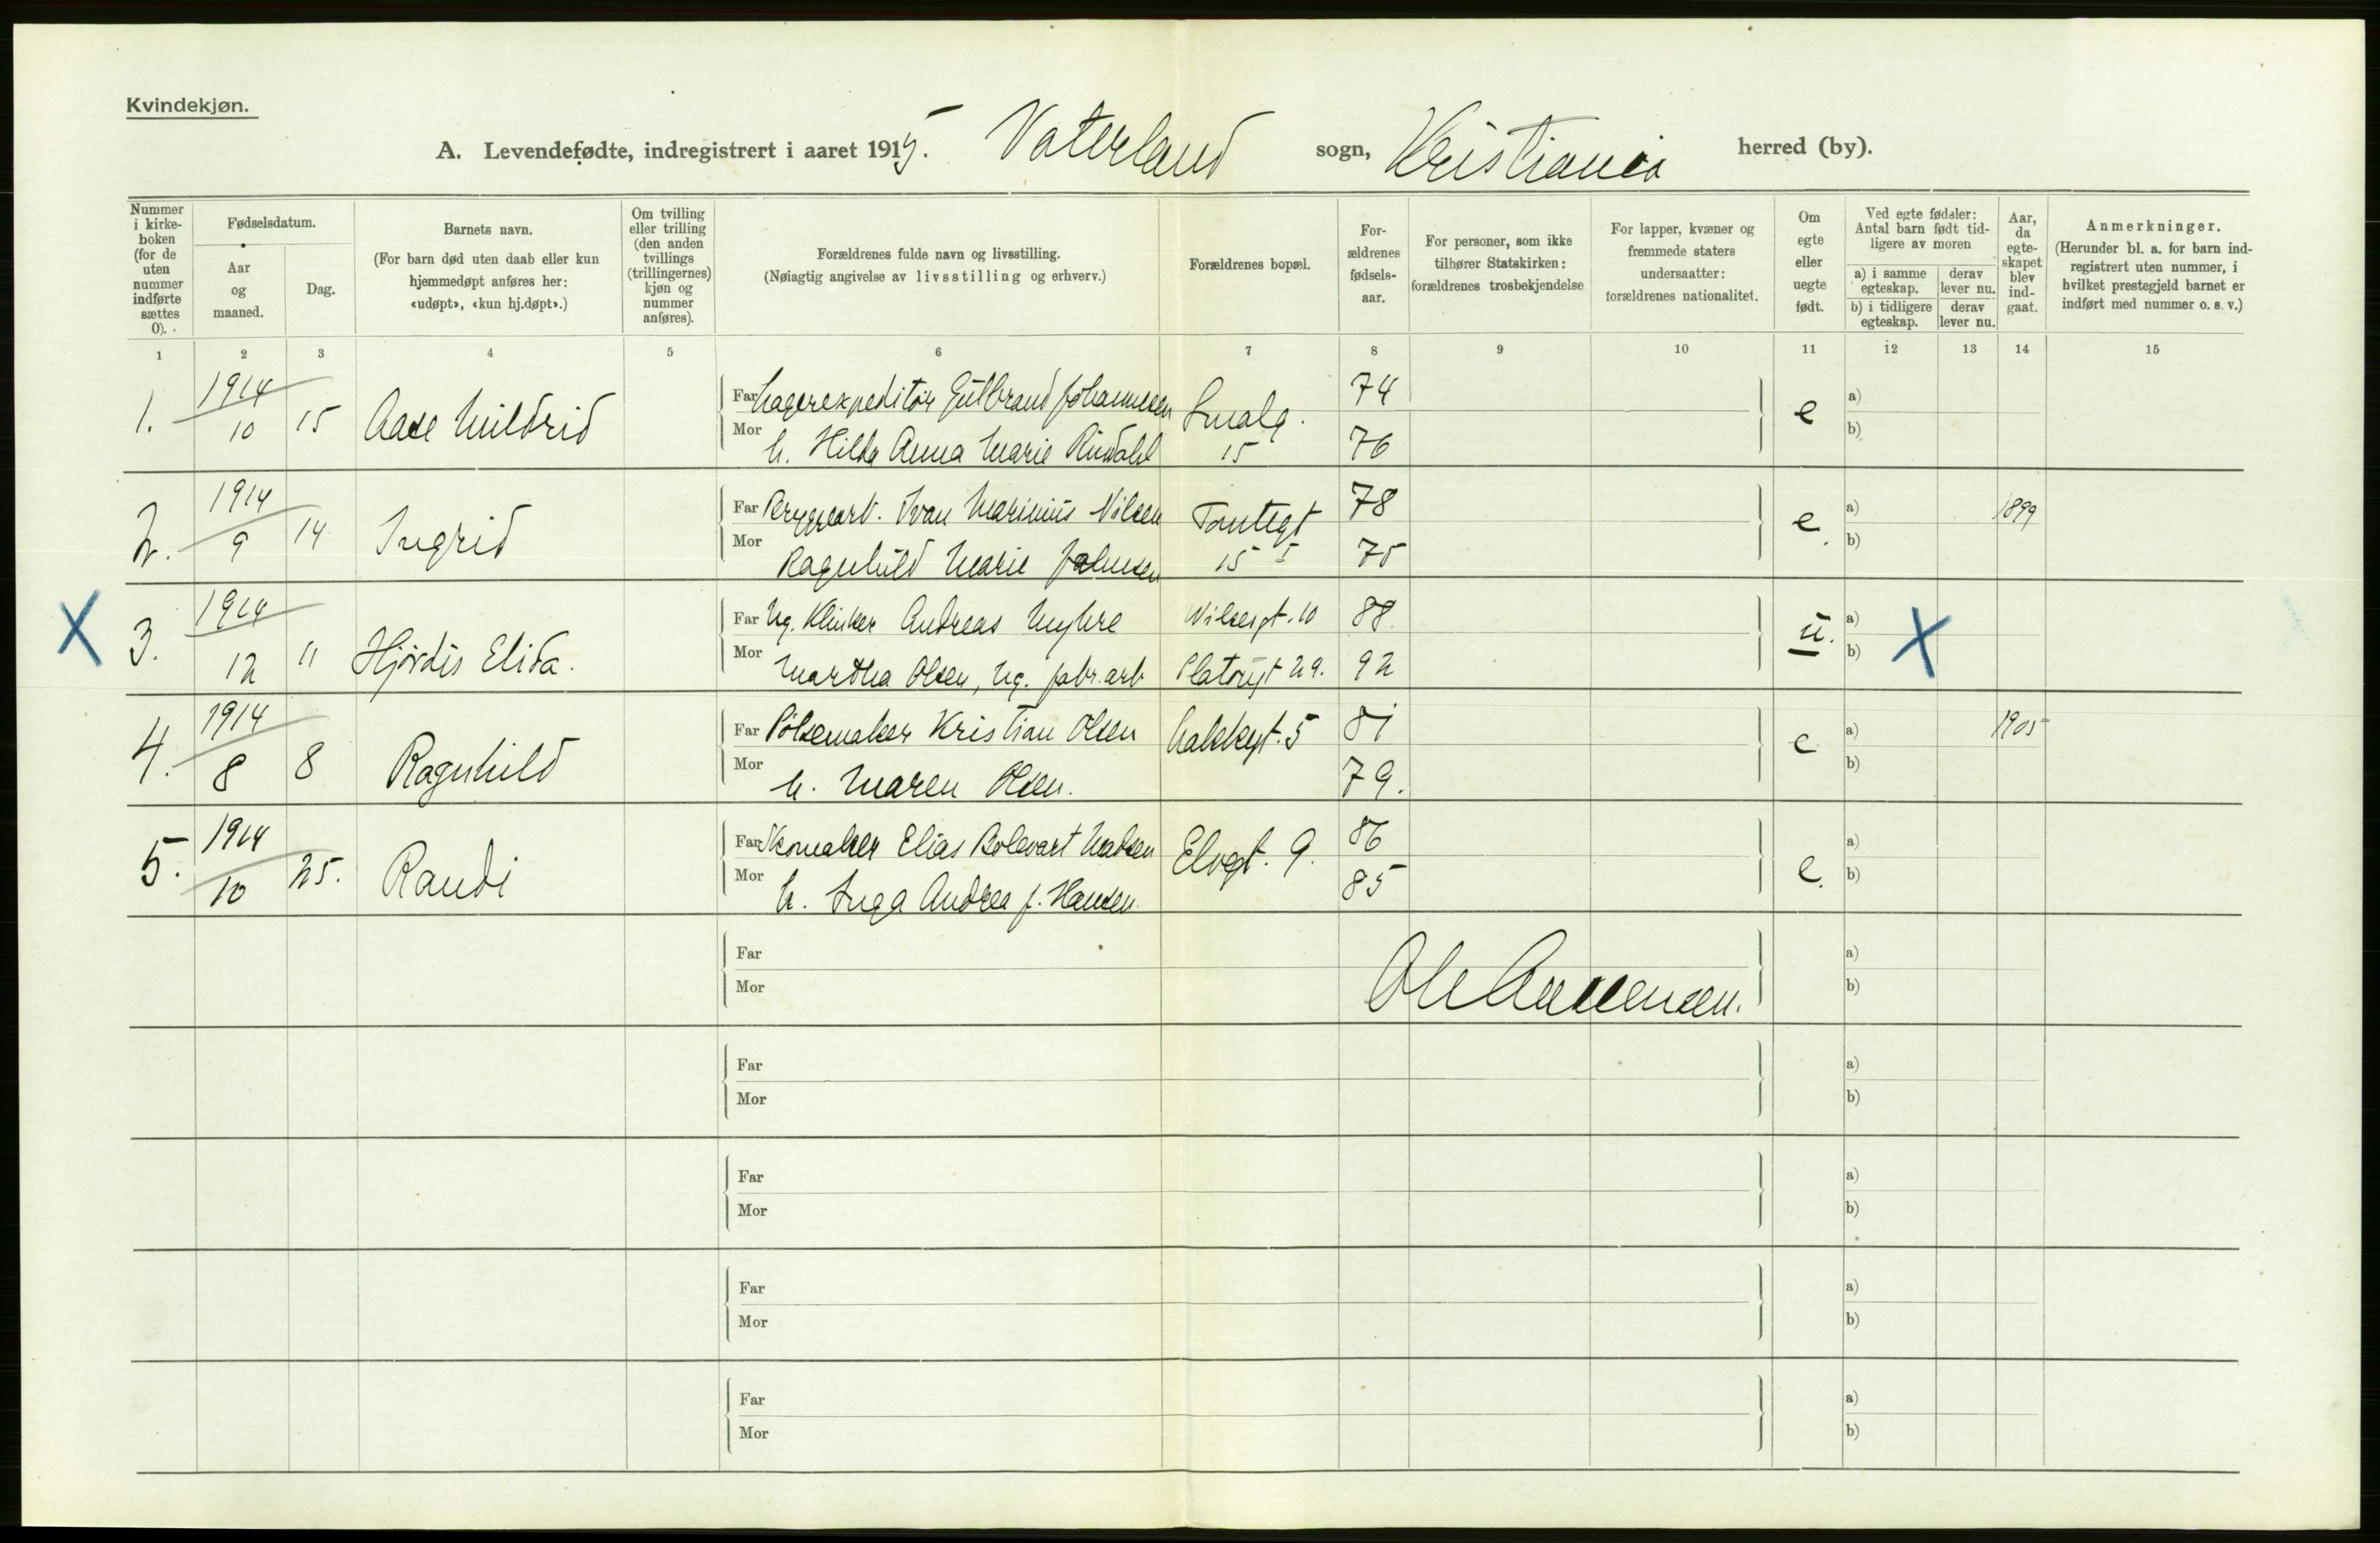 Kvindekjøn.
A. Levendefødte, indregistrert i aaret 1915. Vaterland sogn, Kristiania herred (by).
Nummer i kirkeboken (for de uten nummer indførte sættes 0).
Fødselsdatum.
Aar og maaned.
Dag.
Barnets navn.
(For barn død uten daab eller kun hjemmedøpt anføres her: «udøpt», «kun hj.døpt».)
Om tvilling eller trilling (den anden tvillings (trillingernes) kjøn og nummer anføres).
Forældrenes fulde navn og livsstilling.
(Nøiagtig angivelse av livsstilling og erhverv.)
Forældrenes bopæl.
Forældrenes fødselsaar.
For personer, som ikke tilhører Statskirken: forældrenes trosbekjendelse
For lapper, kvæner og fremmede staters undersaatter: forældrenes nationalitet.
Om egte eller uegte født.
Ved egte fødsler: Antal barn født tidligere av moren
a) i samme egteskap.
derav lever nu.
b) i tidligere egteskap.
derav lever nu.
Aar, da egteskapet blev indgaat.
Anmerkninger.
(Herunder bl. a. for barn indregistrert uten nummer, i hvilket prestegjeld barnet er indført med nummer o. s. v.)
1 2 3 4 5 6 7 8 9 10 11 12 13 14 15
1. 1914 10 15 Aase Mildrid
Far Lagerexpeditør Gulbrand Johannesen Smalg. 74 e a)
Mor h. Hilda Anna Marie Rindahl 15 76 b)
2. 1914 9 14 Ingrid
Far Bryggearb. Ivan Marinius Nilsen Tomtegt 78 e. a) 1899
Mor Ragnhild Marie Johnsen 15 75 b)
X 3. 1914 12 11 Hjørdis Elida.
Far Ug. Klinker Andreas Myhre Nilsesgt. 10 88 u. a) X
Mor Martha Olsen, Ug. fabr. arb. Platougt 29. 92 b)
4. 1914 8 8 Ragnhild
Far Pølsemaker Kristian Olsen Lakkegt. 5 81 e a) 1905
Mor h. Maren Olsen. 79. b)
5. 1914 10 25. Randi
Far Skomaker Elias Bolevart Madsen Elvegt. 9. 86 e. a)
Mor h. Inga Andrea f. Hansen. 85 b)
Far a)
Mor b)
Far a)
Mor b)
Far a)
Mor b)
Far a)
Mor b)
Far a)
Mor b)